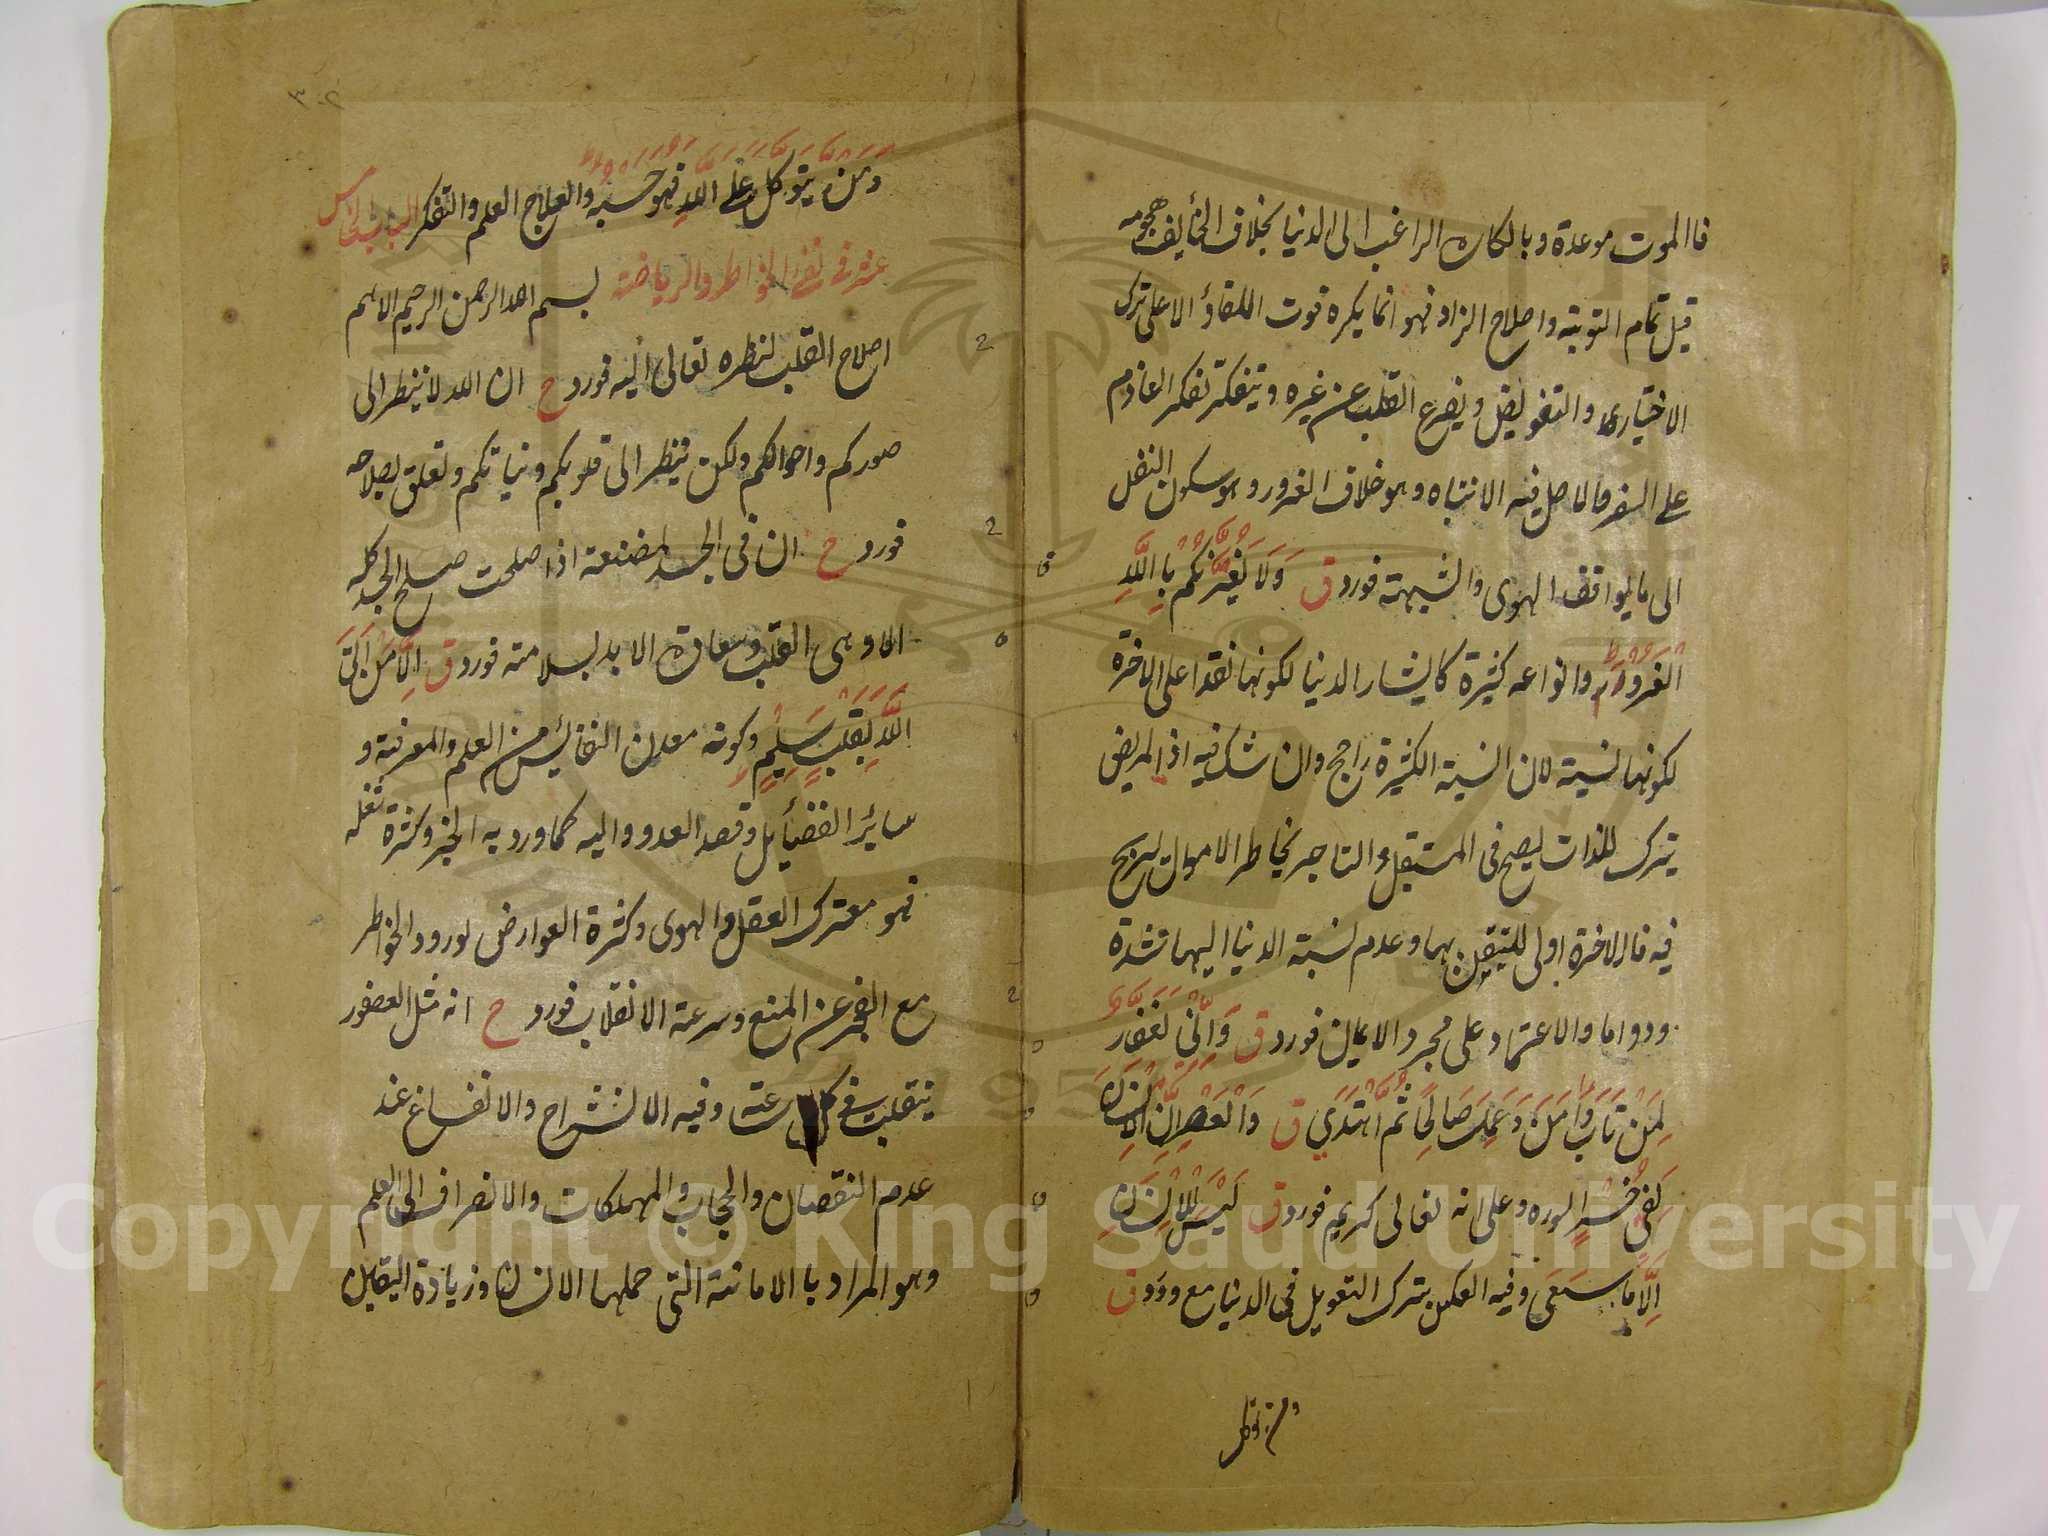 فالموت موعدة وبالكاره الراغب الى الدنيا بخلاف الخايف هجومه
قبل تمام التوبة واصلاح الزاد فهو انما يكره فوت اللقاء والاعلى ترك
الاختيارى والتفويض ويفرغ القلب عن غيره ويتفكر تفكر العازم
على السفر فالاصل فيه الانتباه وهو خلاف الغرور وهو سكون النفس
الى ما يوافق الهوى والشبهة فورد ق وَلَا يَغُرَّنَّكُمْ بِاللَّهِ
الْغَرُورُ وانواعه كثيرة كايثار الدنيا لكونها نقدا على الاخرة
لكونها نسية لان النسية الكثيرة راجح وان شك فيه اذ المريض
يترك للذات ليصح فى المستقبل والتاجر يخاطر الاموال ليربح
فيه فالاخرة اولى للتيقن بها وعدم نسبة الدنيا اليها شدة
ودواما والاعتماد على مجرد الايمان فورد ق وَاِنِّي لَغَفَّارٌ
لِمَنْ تَابَ وَاٰمَنَ وَعَمِلَ صَالِحًا ثُمَّ اهْتَدَي ق وَالْعَصْرِ اِنَّ الْاِنْسَانَ
لَفِي خُسْرٍ السورة وعلى انه تعالى كريم فورد ق لَيْسَ لِلْاِنْسَانِ
اِلَّا مَا سَعَى وفيه العكس بترك التعويل فى الدنيا مع ورود ق
ومن يتوكل
٣٠٢
وَمَنْ يَتَوَكَّلْ عَلَى اللَّهِ فَهُوَ حَسْبُهُ والعلاج العلم والتفكر الباب الخامس
عشر في نفي الخواطر والرياضة بسم الله الرحمن الرحيم الاهم
اصلاح القلب لنظره تعالى اليه فورد ح ان الله لا ينظر الى
صوركم واحوالكم ولكن ينظر الى قلوبكم ونياتكم وتعلق بصلاحه
فورد ح ان فى الجسد لمضغة اذا صلحت صلح الجسد كله
الا وهى القلب وسعادة الابد بسلامته فورد ق اِلَّا مَنْ اَتَى
اللَّهَ بِقَلْبٍ سَلِيمٍ وكونه معدن النفائس من العلم والمعرفة و
سائر الفضايل وقصد العدو اليه كما ورد به الخبر وكثرة شغله
فهو معترك العقل والهوى وكثرة العوارض لورود الخواطر
مع العجز عن المنع وسرعة الانقلاب فورد ح انه مثل العصفور
ينقلب في كل ساعة وفيه الانشراح والانفساح عند
عدم النقصان والحجاب والمهلكات والانصراف الى العلم
وهو المراد بالامانة التى حملها الانسان وزيادة اليقين
Copyright © King Saud University